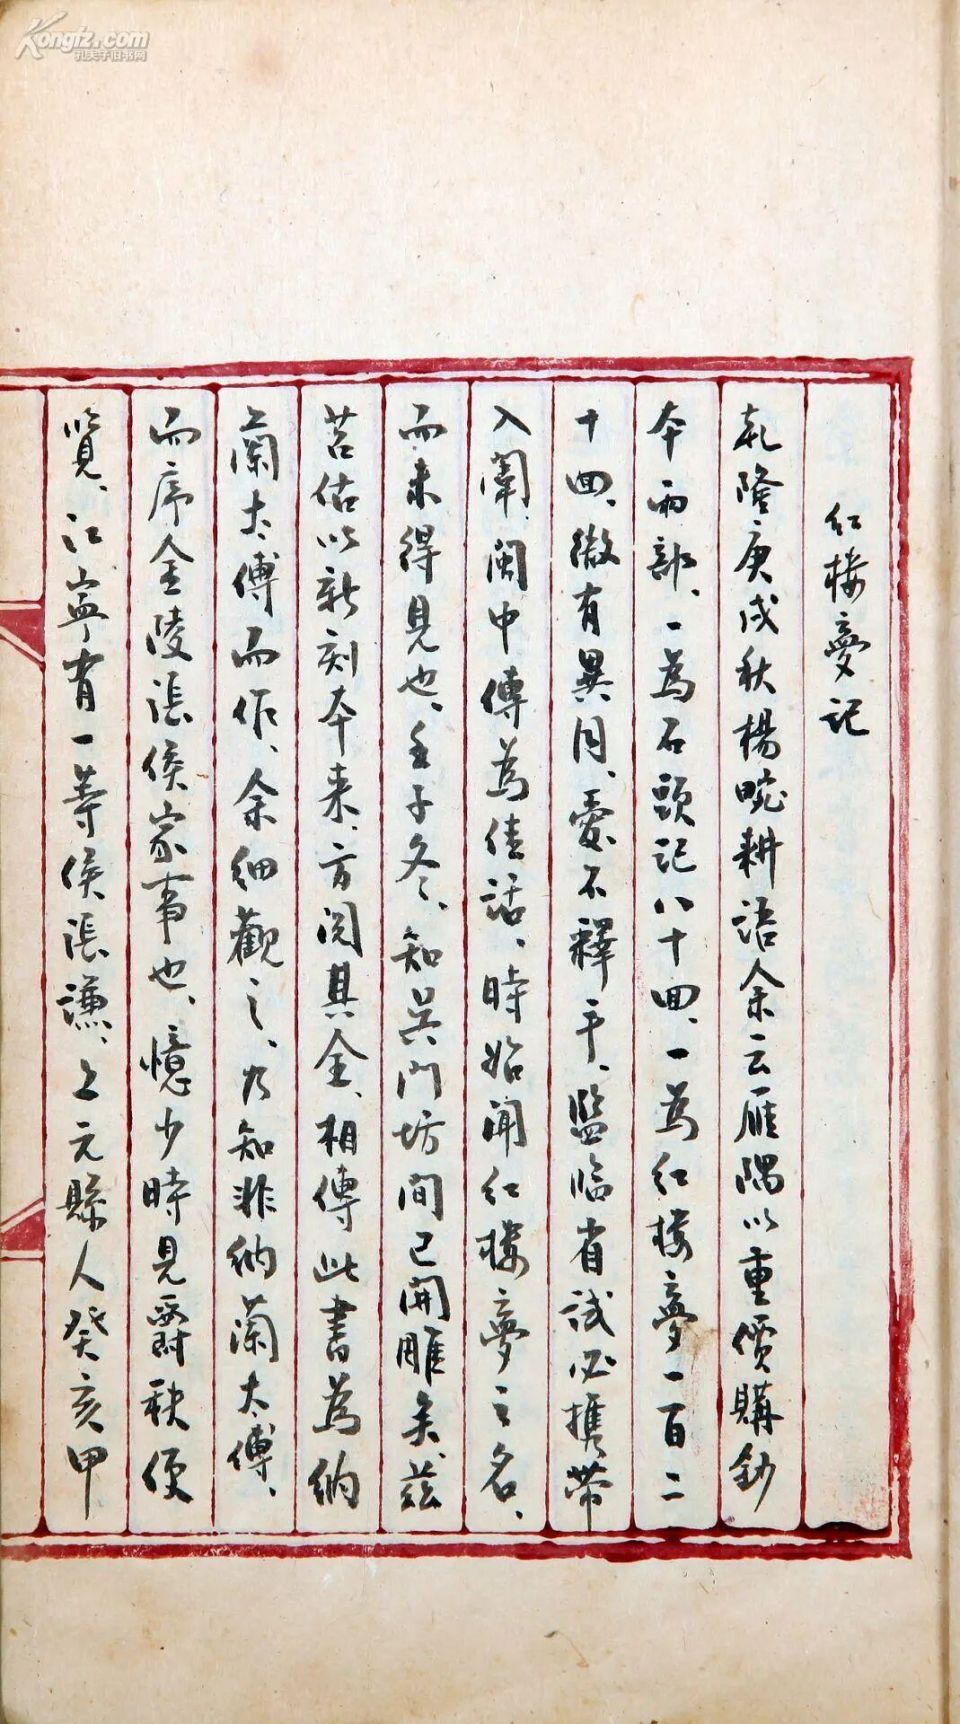 Kongfz.com
孔夫子旧书网
红楼夢记
乾隆庚戌秋楊畹耕语余云雁隅以重價購鈔
本兩部、一爲石頭记八十囬、一爲红楼夢一百二
十囬、微有異同、愛不釋手、監临省試必攜带
入闈、闽中傳爲佳话、時始聞红楼夢之名、
而未得見也、壬子冬、知吴门坊间已開雕矣、兹
苕估以新刻本来、方阅其全、相傳此書爲纳
蘭太傅而作、余细觀之、乃知非纳蘭太傅、
而序金陵張侯家事也、憶少時見爵秩便
覽、江寧有一等侯張謙、上元縣人癸亥甲